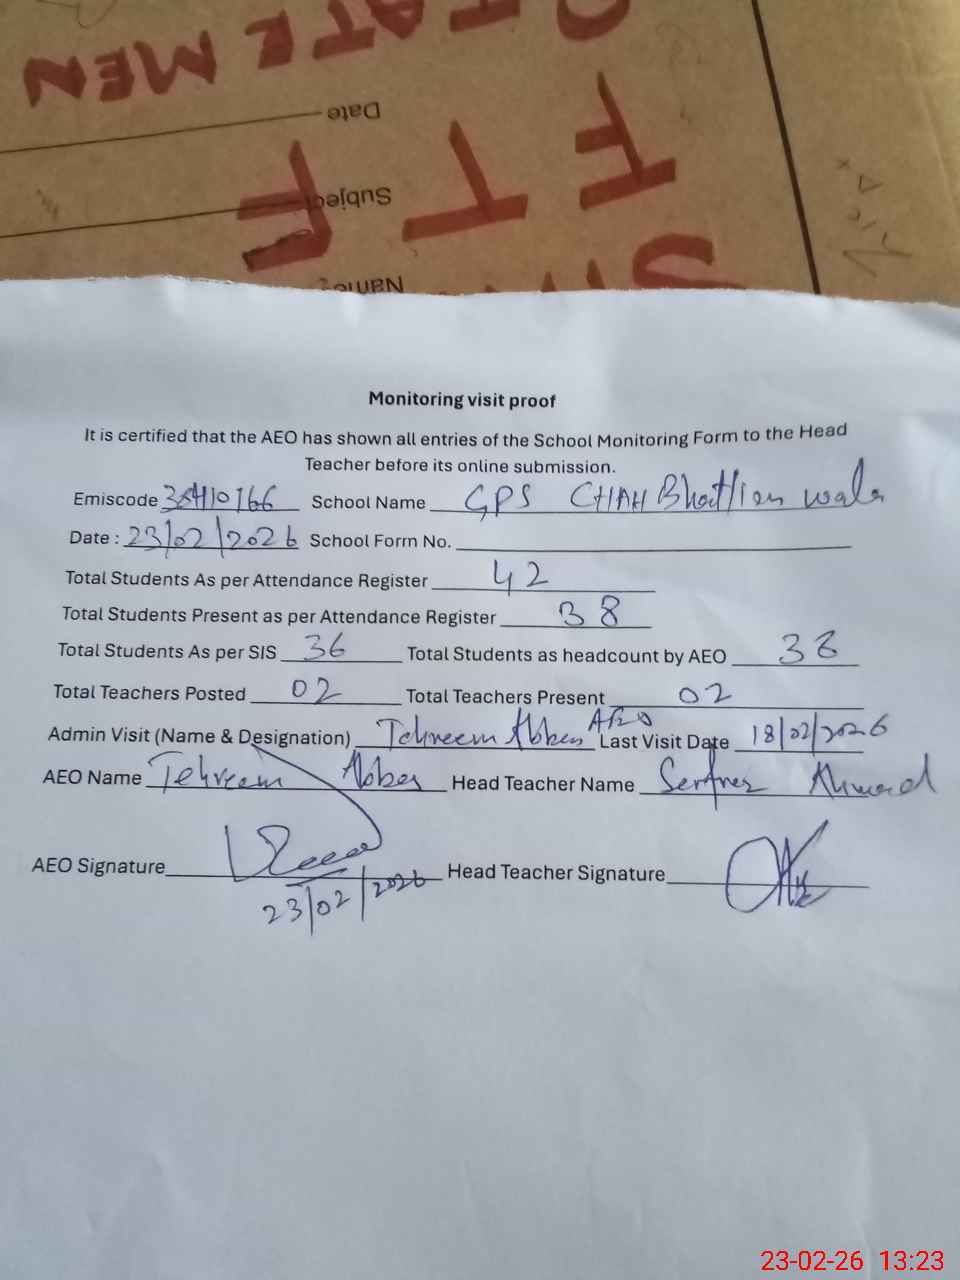 STATEMEN
Date
FTF
Subject
Name
Monitoring visit proof
It is certified that the AEO has shown all entries of the School Monitoring Form to the Head
Teacher before its online submission.
Emiscode School Name GPS CHAH Bhattian wala
Date : 23/02/2026 School Form No.
Total Students As per Attendance Register 42
Total Students Present as per Attendance Register 38
Total Students As per SIS 36 Total Students as headcount by AEO 38
Total Teachers Posted 02 Total Teachers Present 02
Admin Visit (Name & Designation) Tehreem Abbas AEO Last Visit Date 18/02/2026
AEO Name Tehreem Abbas Head Teacher Name Ahmad
AEO Signature Head Teacher Signature
23/02/2026
23-02-26 13:23